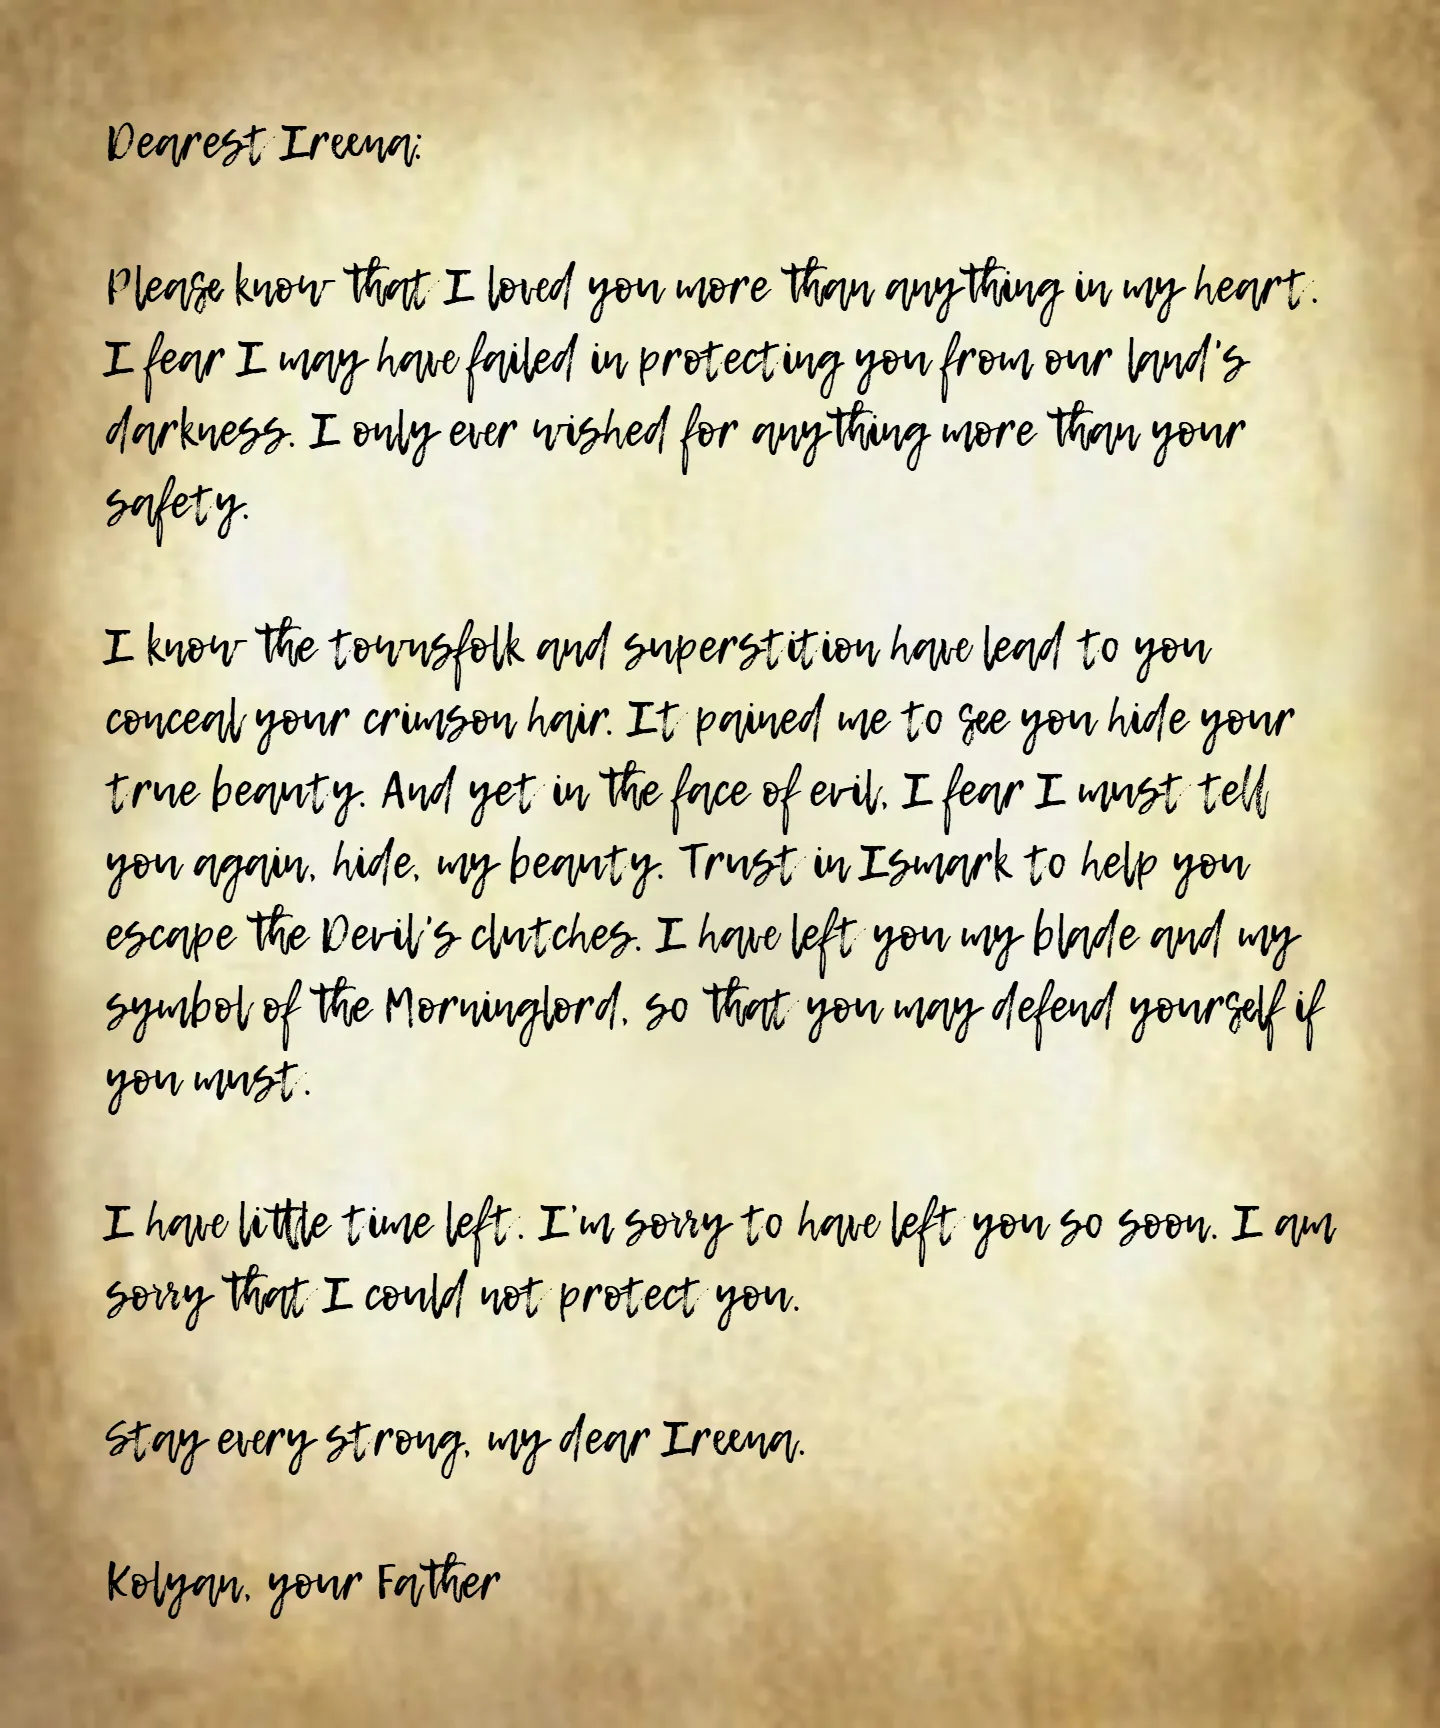 Dearest Ireena:
Please know that I loved you more than anything in my heart.
I fear I may have failed in protecting you from our land's
darkness. I only ever wished for anything more than your
safety.
I know the townsfolk and superstition have lead to you
conceal your crimson hair. It pained me to see you hide your
true beauty. And yet in the face of evil, I fear I must tell
you again, hide, my beauty. Trust in Ismark to help you
escape the Devil's clutches. I have left you my blade and my
symbol of the Morninglord, so that you may defend yourself if
you must.
I have little time left. I'm sorry to have left you so soon. I am
sorry that I could not protect you.
Stay every strong, my dear Ireena.
Kolyan, your Father